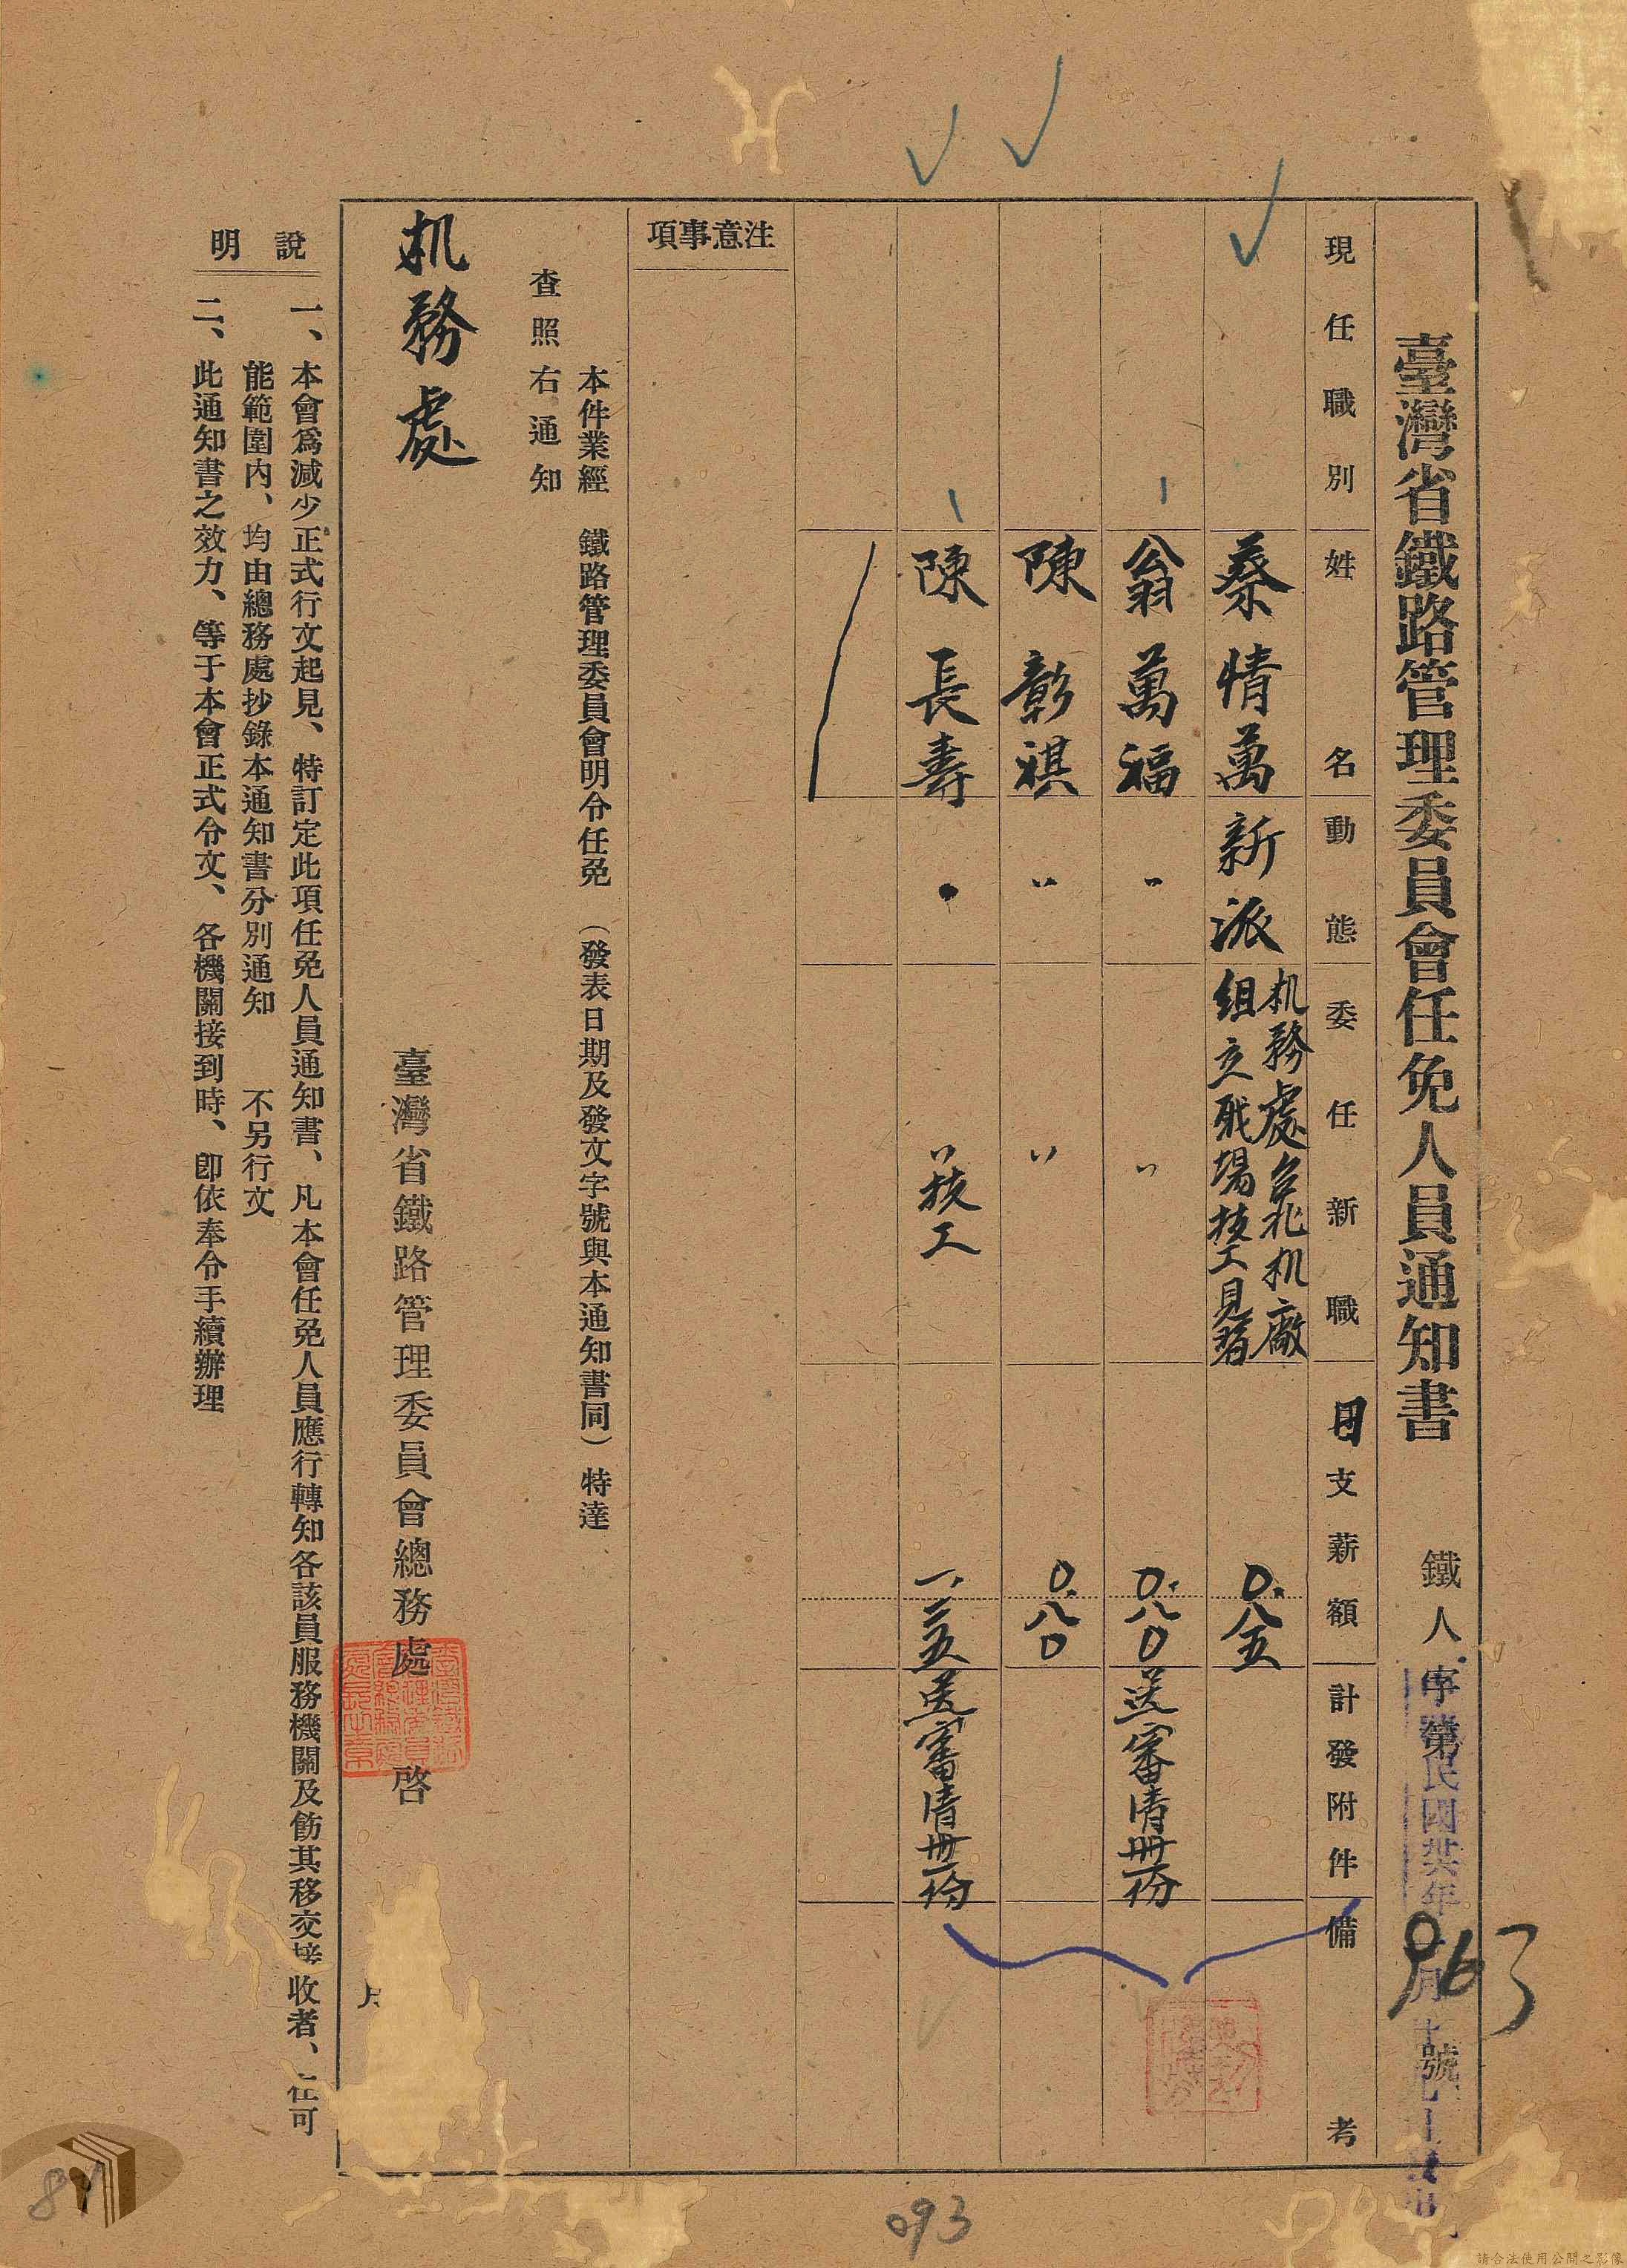 臺灣省鐵路管理委員會任免人員通知書
鐵人字第963號
民國卅六年
現任職別
姓名
動態
委任新職
日支薪額
計發附件
備考
蔡情萬
新派
机務處台北机廠
組立職場技工見習
0.八五
翁萬福
〃
〃
0.八0
送審清冊一份
陳彰祺
〃
〃
0.八0
陳長壽
〃技工
一.二五
送審清冊一份
注意事項
本件業經 鐵路管理委員會明令任免 (發表日期及發文字號與本通知書同) 特達
查照右通知
机務處
臺灣省鐵路管理委員會總務處 啓
月
說明
一、本會爲減少正式行文起見、特訂定此項任免人員通知書、凡本會任免人員應行轉知各該員服務機關及飭其移交接收者、在可
能範圍內、均由總務處抄錄本通知書分別通知 不另行文
二、此通知書之效力、等于本會正式令文、各機關接到時、卽依奉令手續辦理
093
請合法使用公開之影像